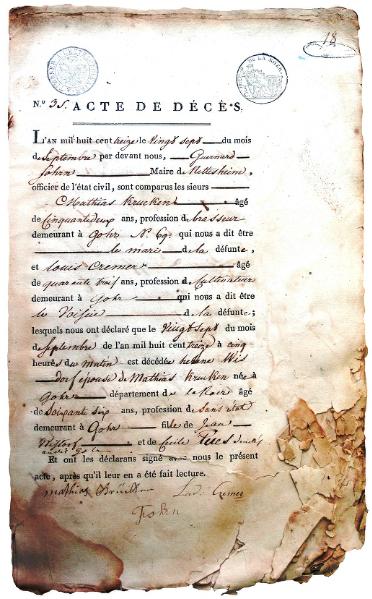 18
N.º 35. ACTE DE DÉCÈS.
L'AN mil huit cent treize le vingt sept du mois
de septembre par devant nous,
Maire de Nettesheim,
officier de l'état civil, sont comparus les sieurs
Mathias Krucken âgé
de Cinquantedeux ans, profession de brasseur
demeurant à Gohr Nº 69 qui nous a dit être
le mari de la défunte,
et Louis Cremer âgé
de quarante trois ans, profession de Cultivateur
demeurant à Gohr qui nous a dit être
le Voisin de la défunte;
lesquels nous ont déclaré que le Vingt sept du mois
de Septembre de l'an mil huit cent treize à cinq
heures du matin est décédée helene Wis
dorf epouse de Mathias Krucken née à
Gohr département de la Roer âgé
de Soixante six ans, profession de Sans etat
demeurant à Gohr fille de Jean
et de Cecile
Et ont les déclarans signé avec nous le présent
acte, après qu'il leur en a été fait lecture.
mathias Cremer